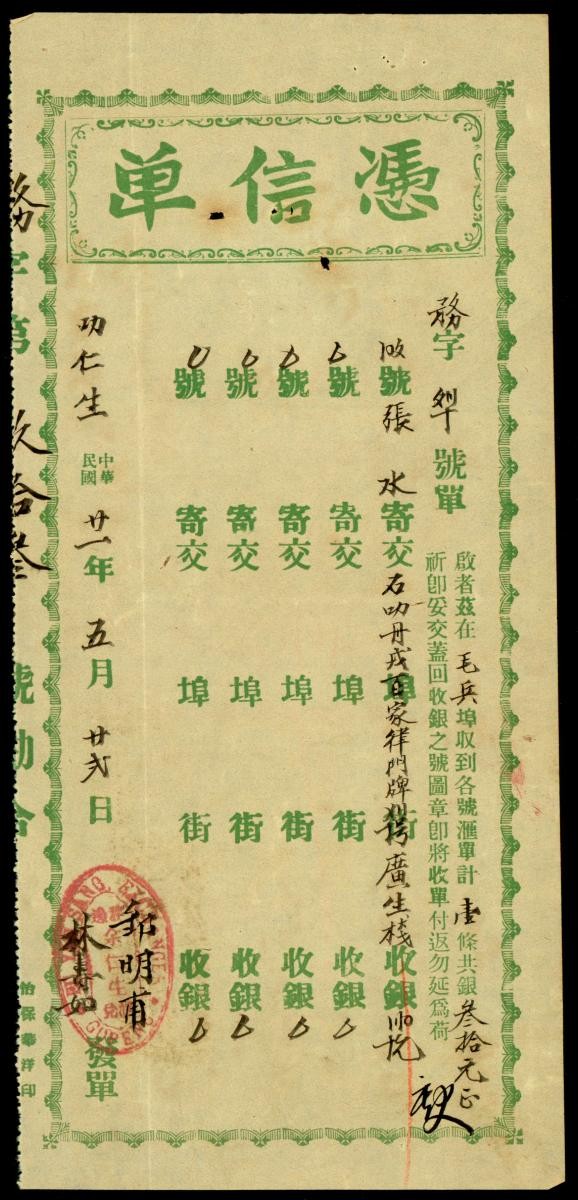 憑信单
務字 號單
啟者茲在毛兵埠收到各號滙單計壹條共銀叁拾元正
祈卽妥交蓋回收銀之號圖章卽將收單付返勿延爲荷
號張 水寄交石叻丹戎百家 門牌 廣生棧收銀
號 寄交 埠 街 收銀
號 寄交 埠 街 收銀
號 寄交 埠 街 收銀
號 寄交 埠 街 收銀
叻仁生 中華民國廿一年五月廿弍日 明甫 林壽如 發單
務字第 玖拾叁 號勘合
怡保華洋印